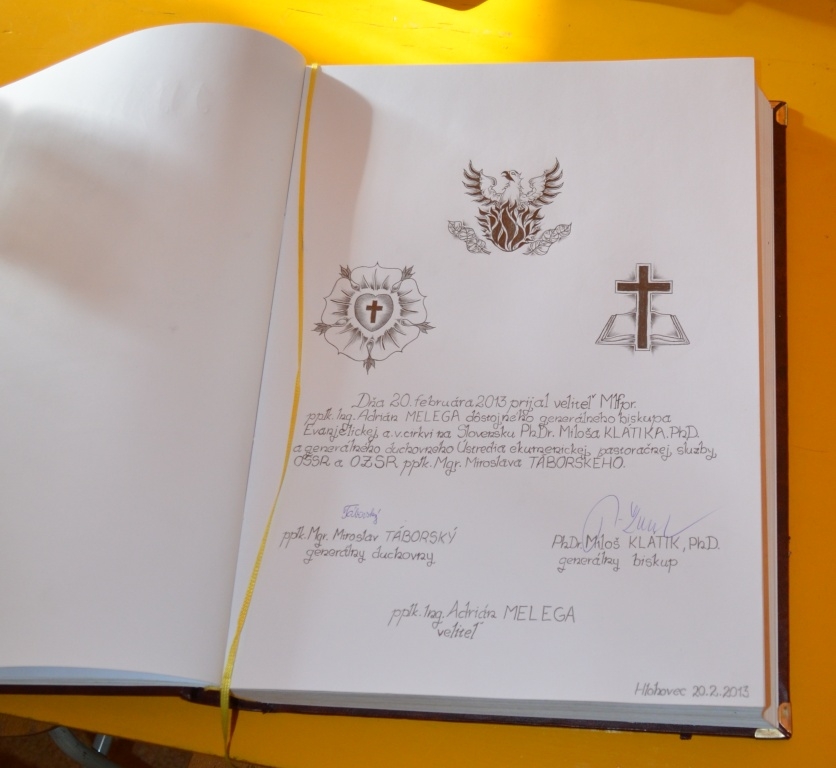 Dňa 20. februára 2013 prijal veliteľ Mlpr.
pplk. Ing. Adrián MELEGA dôstojného generálneho biskupa
Evanjelickej, a.v. cirkvi na Slovensku PhDr. Miloša KLATIKA, PhD.
a generálneho duchovného Ústredia ekumenickej, pastoračnej, služby,
OSSR a OZSR pplk. Mgr. Miroslava TÁBORSKÉHO.
Táborský
pplk. Mgr. Miroslav TÁBORSKÝ
generálny duchovny
PhDr. Miloš KLATIK, PhD.
generálny biskup
pplk. Ing. Adrián MELEGA
veliteľ
Hlohovec 20.2.2013